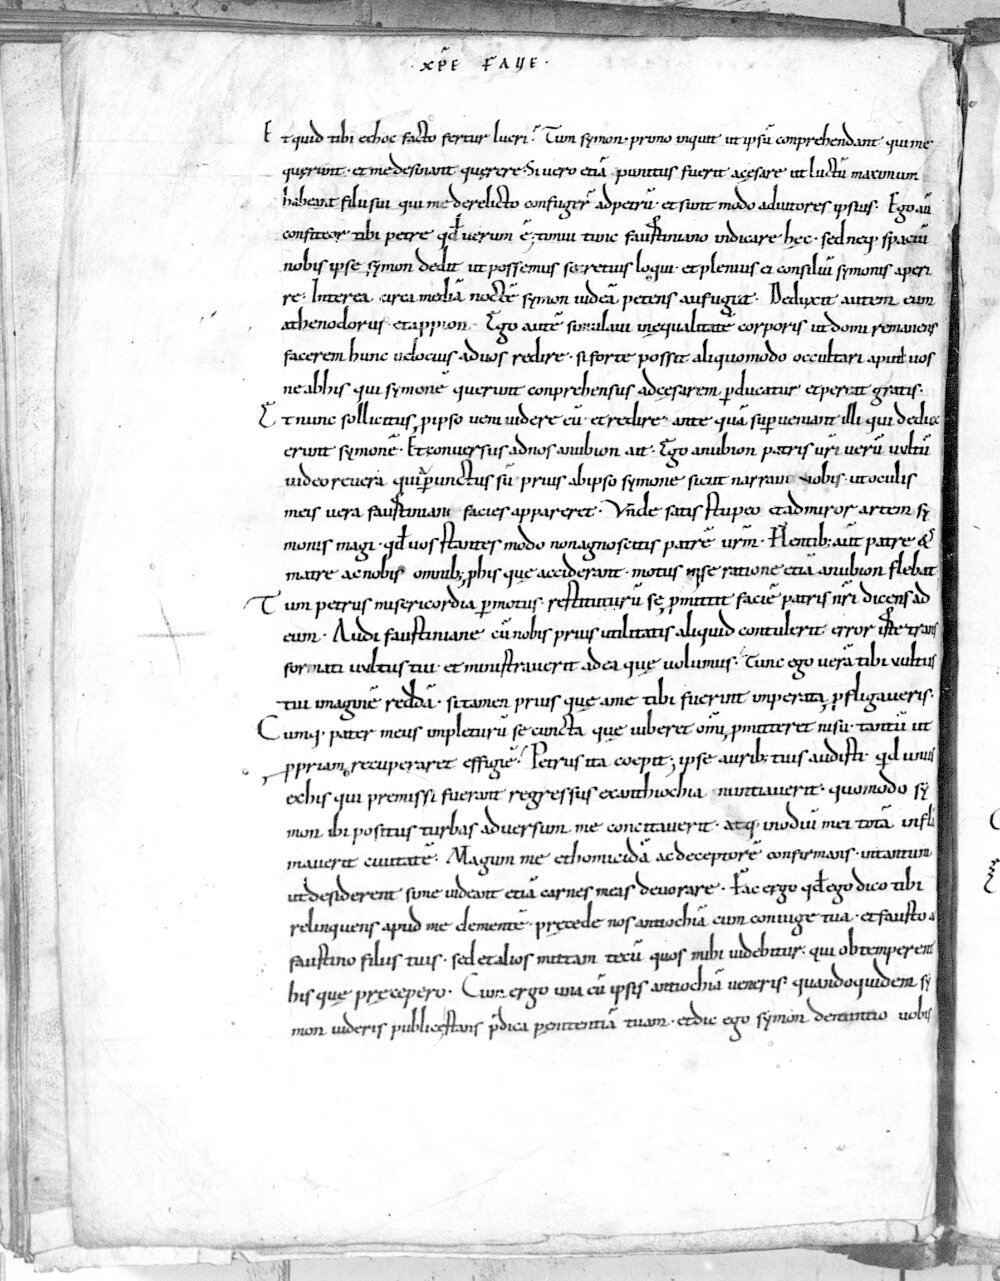 · XP̄E FAUE ·
Et quid tibi ex hoc facto fertur lucri? Tum symon · primo inquit ut ipsū conprehendant qui me
querunt · et me desinant querere · Si vero etiā punitus fuerit a cęsare ut luctū maximum
habeant filii sui qui me derelicto confugerˉ ad petrū · et sunt modo adiutores ipsius · Ego aū
confiteor tibi petre qđ verum ē; timui tunc faustiniano indicare hęc · sed neq; spaciū
nobis ipse symon dedit ut possemus secretius loqui · et plenius ei consiliū symonis aperi
re · Interea circa mediā noctē symon iudeā petens aufugit · Deduxit autem eum
athenodorus · et appion · Ego autē simulavi inequalitatē corporis ut domi remanens
facerem hunc velocius ad vos redire · si forte possit aliquomodo occultari aput vos
ne ab his qui symonē querunt conprehensus ad cęsarem pducatur et pereat gratis ·
Et nunc sollicitus p ipso veni videre eū · et redire ante quā supveniant illi qui deduxe
erunt symonē · Et conversus ad nos anubion ait · Ego anubion patris vr̄i verū vultū
video revera quia punctus sū prius ab ipso symone sicut narravi vobis · ut oculis
meis vera faustiniani facies appareret · Vnde satis stupeo et admiror artem sy
monis magi · qđ vos stantes modo non agnoscitis patrē vr̄m · Flentib; aūt patre &
matre ac nobis omnib; p his que acciderant · motus miseratione etiā anubion flebat
Tum petrus misericordia pmotus · restituturū se pmittit faciē patris nr̄i dicens ad
eum · Audi faustiniane cū nobis prius utilitatis aliquid contulerit error iste trans
formati vultus tui · et ministraverit ad ea quę volumus · Tunc ego verā tibi vultus
tui imaginē reddā · si tamen prius quę a me tibi fuerint imperata pfligaveris ·
Cumq · pater meus impleturū se cuncta quę iuberet om̄i pmitteret nisu · tantū ut
ppriam recuperaret effigiē · Petrus ita coepit; ipse aurib; tuis audisti · qđ unus
ex his qui premissi fuerant regressus ex anthiochia nuntiaverit · quomodo sy
mon ibi positus turbas adversum me concitaverit · atq · in odiū mei totā infla
maverit civitatē · Magum me et homicidā ac deceptorē confirmans · in tantum
ut desiderent si me videant etiā carnes meas devorare · Fac ergo qđ ego dico tibi
relinquens apud me clementē · pręcede nos antiochiā cum coniuge tua · et fausto a
faustino filiis tuis · sed et alios mittam tecū quos mihi videbitur · qui obtemperent
his que pręcepero · Cum ergo una cū ipsis antiochiā veneris · quandoquidem sy
mon videris publicę stans pdica penitentiā tuam · et dic ego symon denuntio vobis